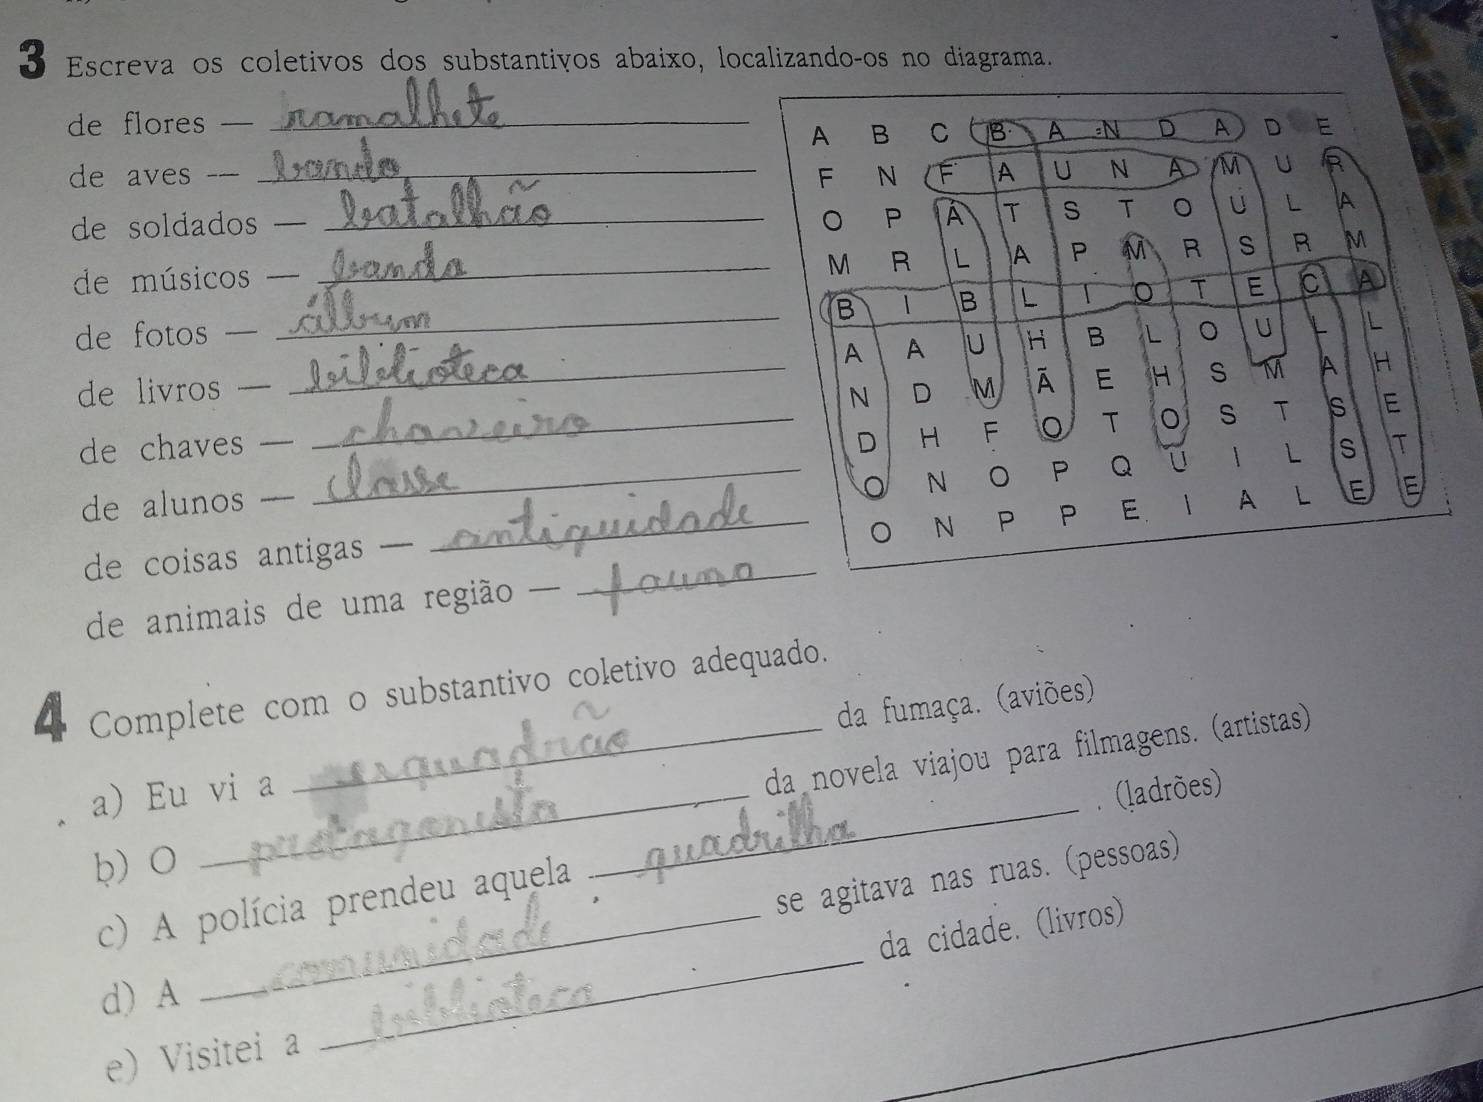 3 Escreva os coletivos dos substantivos abaixo, localizando-os no diagrama.
de flores — ramalhete
de aves — bando
de soldados — batalhão
de músicos — banda
de fotos — álbum
de livros — biblioteca
de chaves — chaveiro
de alunos — classe
de coisas antigas — antiquidade
de animais de uma região — fauna
A B C B A N D A D E
F N F A U N A M U R
O P Á T S T O U L A
M R L A P M R S R M
B I B L I O T E C A
A A U H B L O U L L
N D M Ã E H S M A H
D H F O T O S T S E
O N O P Q U I L S T
O N P P E I A L E E
4 Complete com o substantivo coletivo adequado.
a) Eu vi a esquadrão da fumaça. (aviões)
b) O protagonista da novela viajou para filmagens. (artistas)
c) A polícia prendeu aquela quadrilha . (ladrões)
d) A comunidade se agitava nas ruas. (pessoas)
e) Visitei a biblioteca da cidade. (livros)